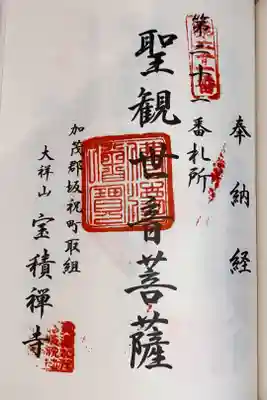 奉納経
第二十二番札所
聖観世音菩薩
加茂郡坂祝町取組
大祥山 宝積禅寺